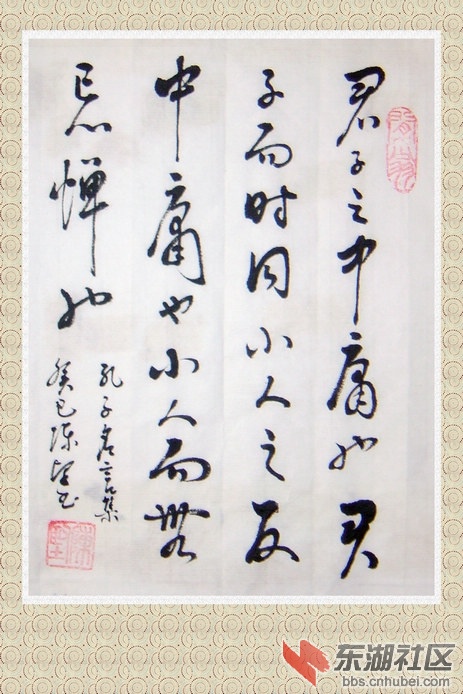 君子之中庸也君
子而时小人之反
中庸也小人而無
忌惮也
孔子名言集
癸巳陈望书
东湖社区
bbs.cnhubei.com